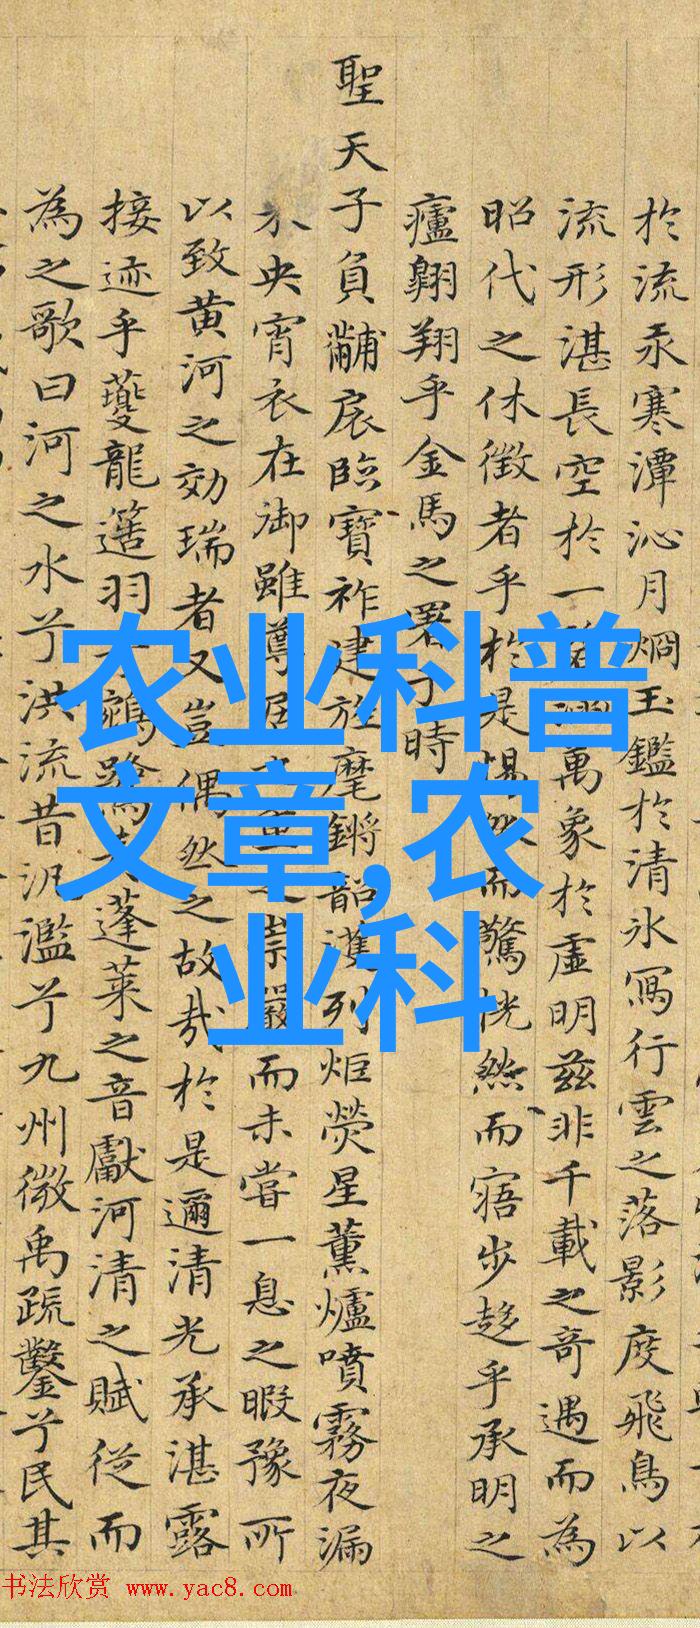 於流汞寒潭沁月烱玉鑑於清氷寫行雲之落影度飛鳥以
流形湛長空於一萬象於虛明茲非千載之奇遇而為
昭代之休徵者乎於是惕然而驚恍然而寤步趍乎承明之
廬翱翔乎金馬之署于時
聖天子負黼扆臨寶祚建旂麾鏘韶濩列炬熒星薰爐噴霧夜漏
未央宵衣在御雖尊居之崇嚴而未嘗一息之暇豫所
以致黄河之効瑞者又豈偶然之故哉於是邇清光承湛露
接迹乎夔龍簉羽鵷鷺蓬萊之音獻河清之賦從而
為之歌曰河之水兮洪流昔汎濫兮九州微禹疏鑿兮民其
农业科普
文章,农
业科
书法欣赏 www.yac8.com